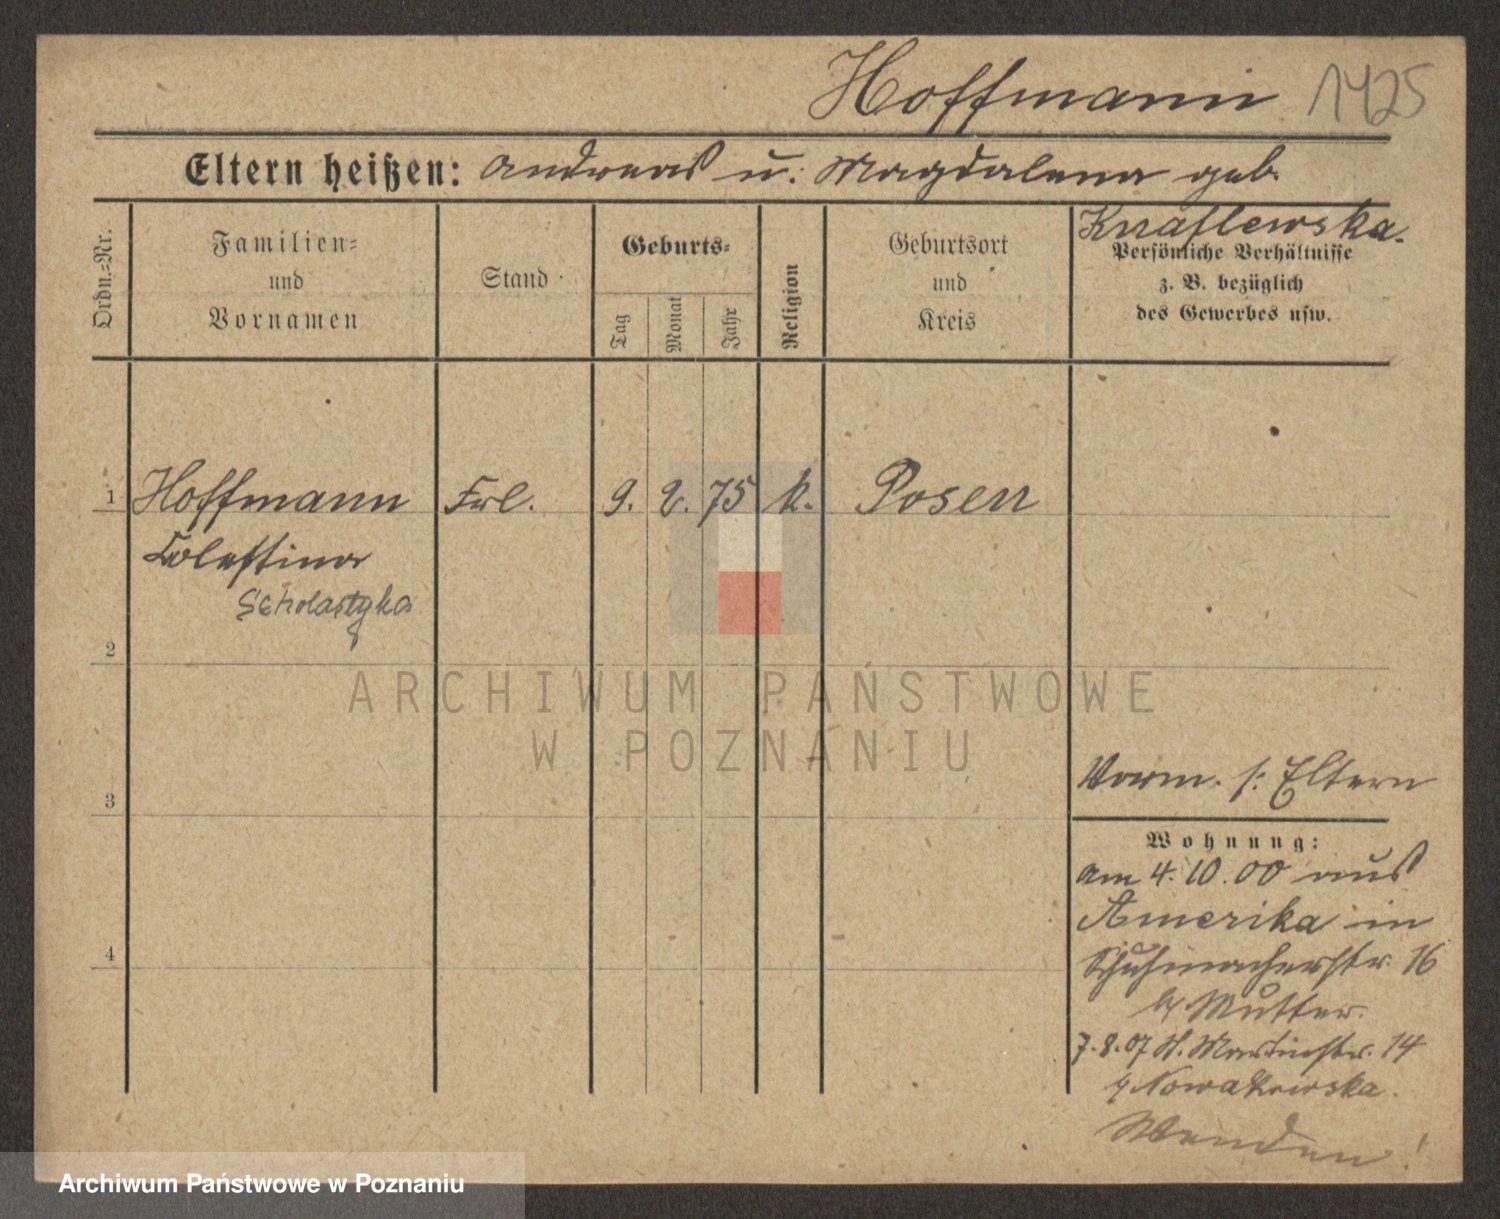 Hoffmann 1425
Eltern heißen: Andreas u. Magdalena geb.
Knaflewska.
Ordn.-Nr.
Familien-
und
Vornamen
Stand
Geburts-
Tag
Monat
Jahr
Religion
Geburtsort
und
Kreis
Persönliche Verhältnisse
z. B. bezüglich
des Gewerbes usw.
1 Hoffmann Frl. 9. 2. 75 k. Posen
Cölestina
Scholastyka
2
ARCHIWUM PAŃSTWOWE
W POZNANIU
Vorm. s. Eltern
3
Wohnung:
am 4.10.00 aus
Amerika in
Schuhmacherstr. 16
b/ Mutter.
4
7.8.07 St. Martinstr. 14
Nowakowska.
Wenden!
Archiwum Państwowe w Poznaniu